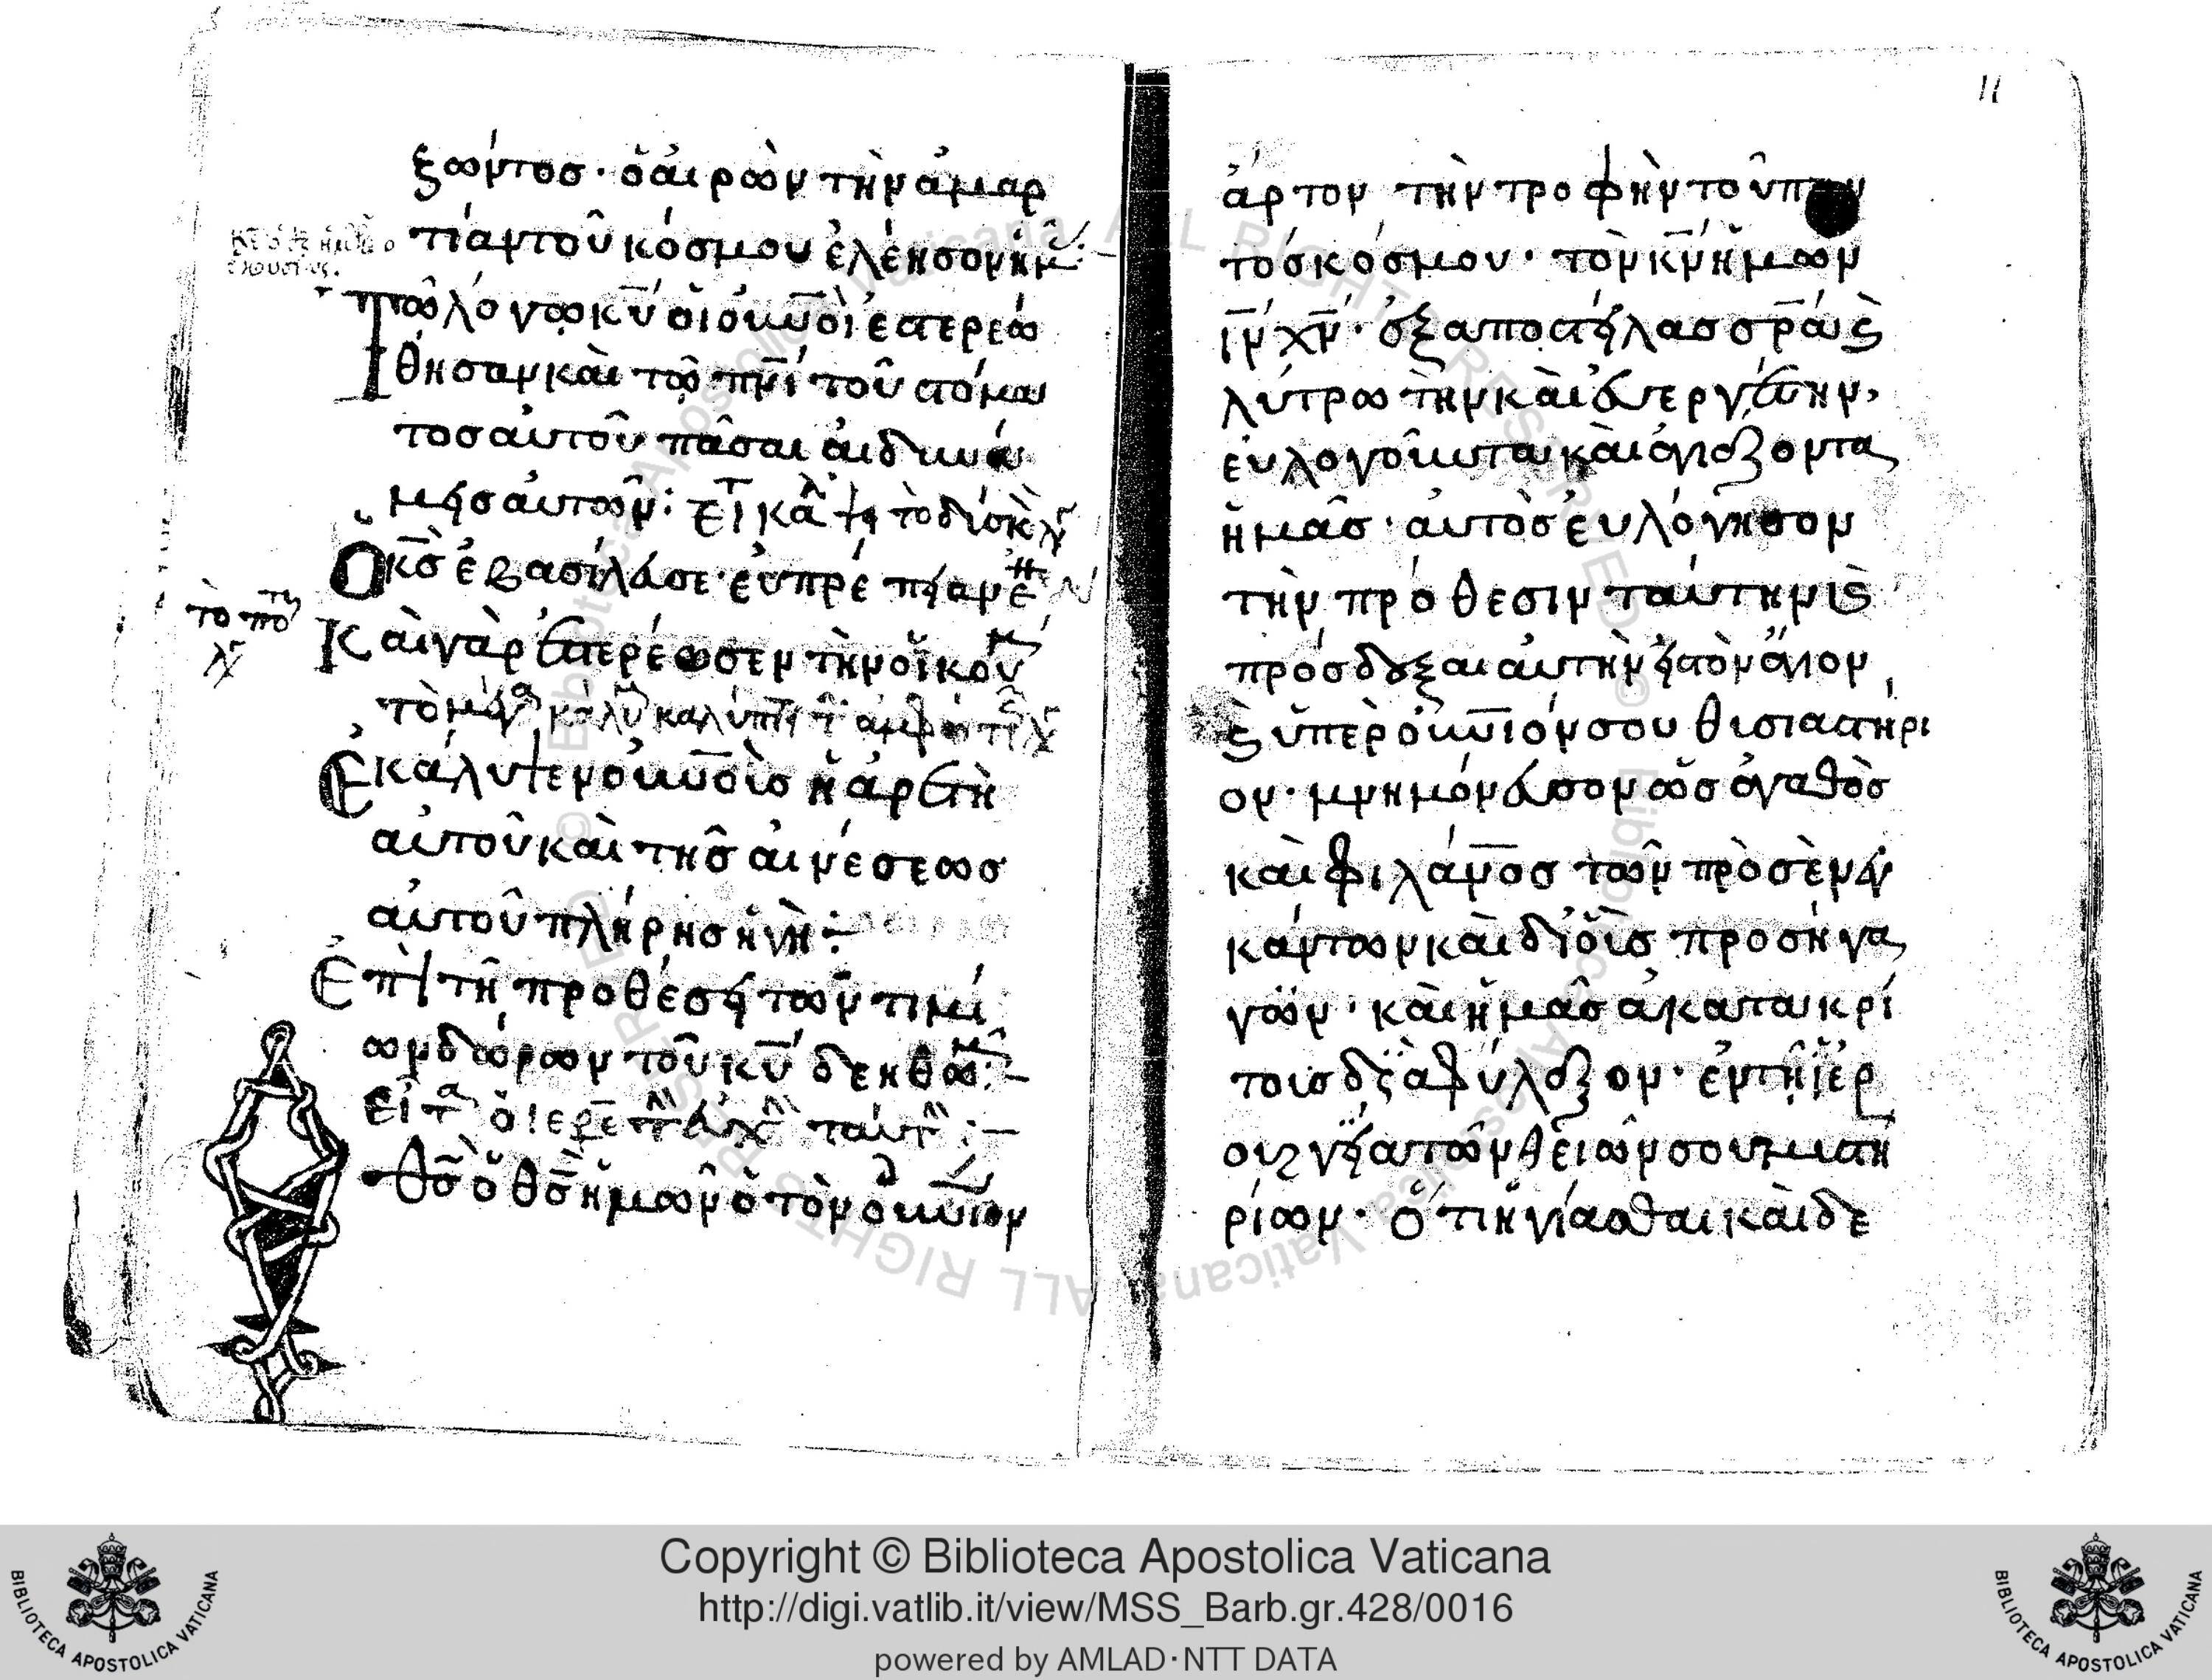 ξωντοσ· ὁ αἱρων τὴν ἁμαρ
τίαν τοῦ κόσμου ἐλέησον ἡμ
Τῶ λόγω κῦ οἱ οὐνοὶ ἐστερεώ
θησαν καὶ τῶ πνὶ τοῦ στόμα
τοσ αὐτοῦ πᾶσαι αἱ δυνά
μεισ αὐτῶν:
Ὁ κσ ἐβασίλευσε· εὐπρέπειαν ἐ
Καὶ γὰρ ἐστερέωσεν τὴν οἰκου
Ἐκάλυψεν οὐνοὺσ ἡ ἀρετὴ
αὐτοῦ καὶ τῆσ αἰνέσεωσ
αὐτοῦ πλήρησ ἡ γῆ:
Ἐπὶ τῆ προθέσει τῶν τιμί
ων δώρων τοῦ κῦ δεηθῶμ:
ὁ θσ ὁ θσ ἡμῶν ὁ τὸν οὐνιον
11
ἄρτον τὴν τροφὴν τοῦ παν
τόσ κόσμου· τὸν κν ἡμῶν
ιν χν· ἐξαποστείλασ σρα κ
λύτρωτην καὶ εὐεργέτην,
εὐλογοῦντα καὶ ἁγιάζοντα
ἡμᾶσ· αὐτὸσ εὐλόγησον
τὴν πρόθεσιν ταύτην κ
πρόσδεξαι αὐτὴν εἰσ τὸν ἅγιον
κ ὑπερουνιόν σου θισιαστήρι
ον· μνημόνευσον ὡσ ἀγαθὸσ
καὶ φιλάνοσ τῶν προσενεγ
κάντων καὶ δι' οὓσ προσήγα
γον· καὶ ἡμᾶσ ἀκατακρί
τουσ διαφύλαξον· ἐν τῆ ἱερ
ουργεία τῶν θείων σου μυστη
ρίων· ὅτι ἡγίασται καὶ δε
Copyright © Biblioteca Apostolica Vaticana
http://digi.vatlib.it/view/MSS_Barb.gr.428/0016
powered by AMLAD·NTT DATA
BIBLIOTECA APOSTOLICA VATICANA
BIBLIOTECA APOSTOLICA VATICANA